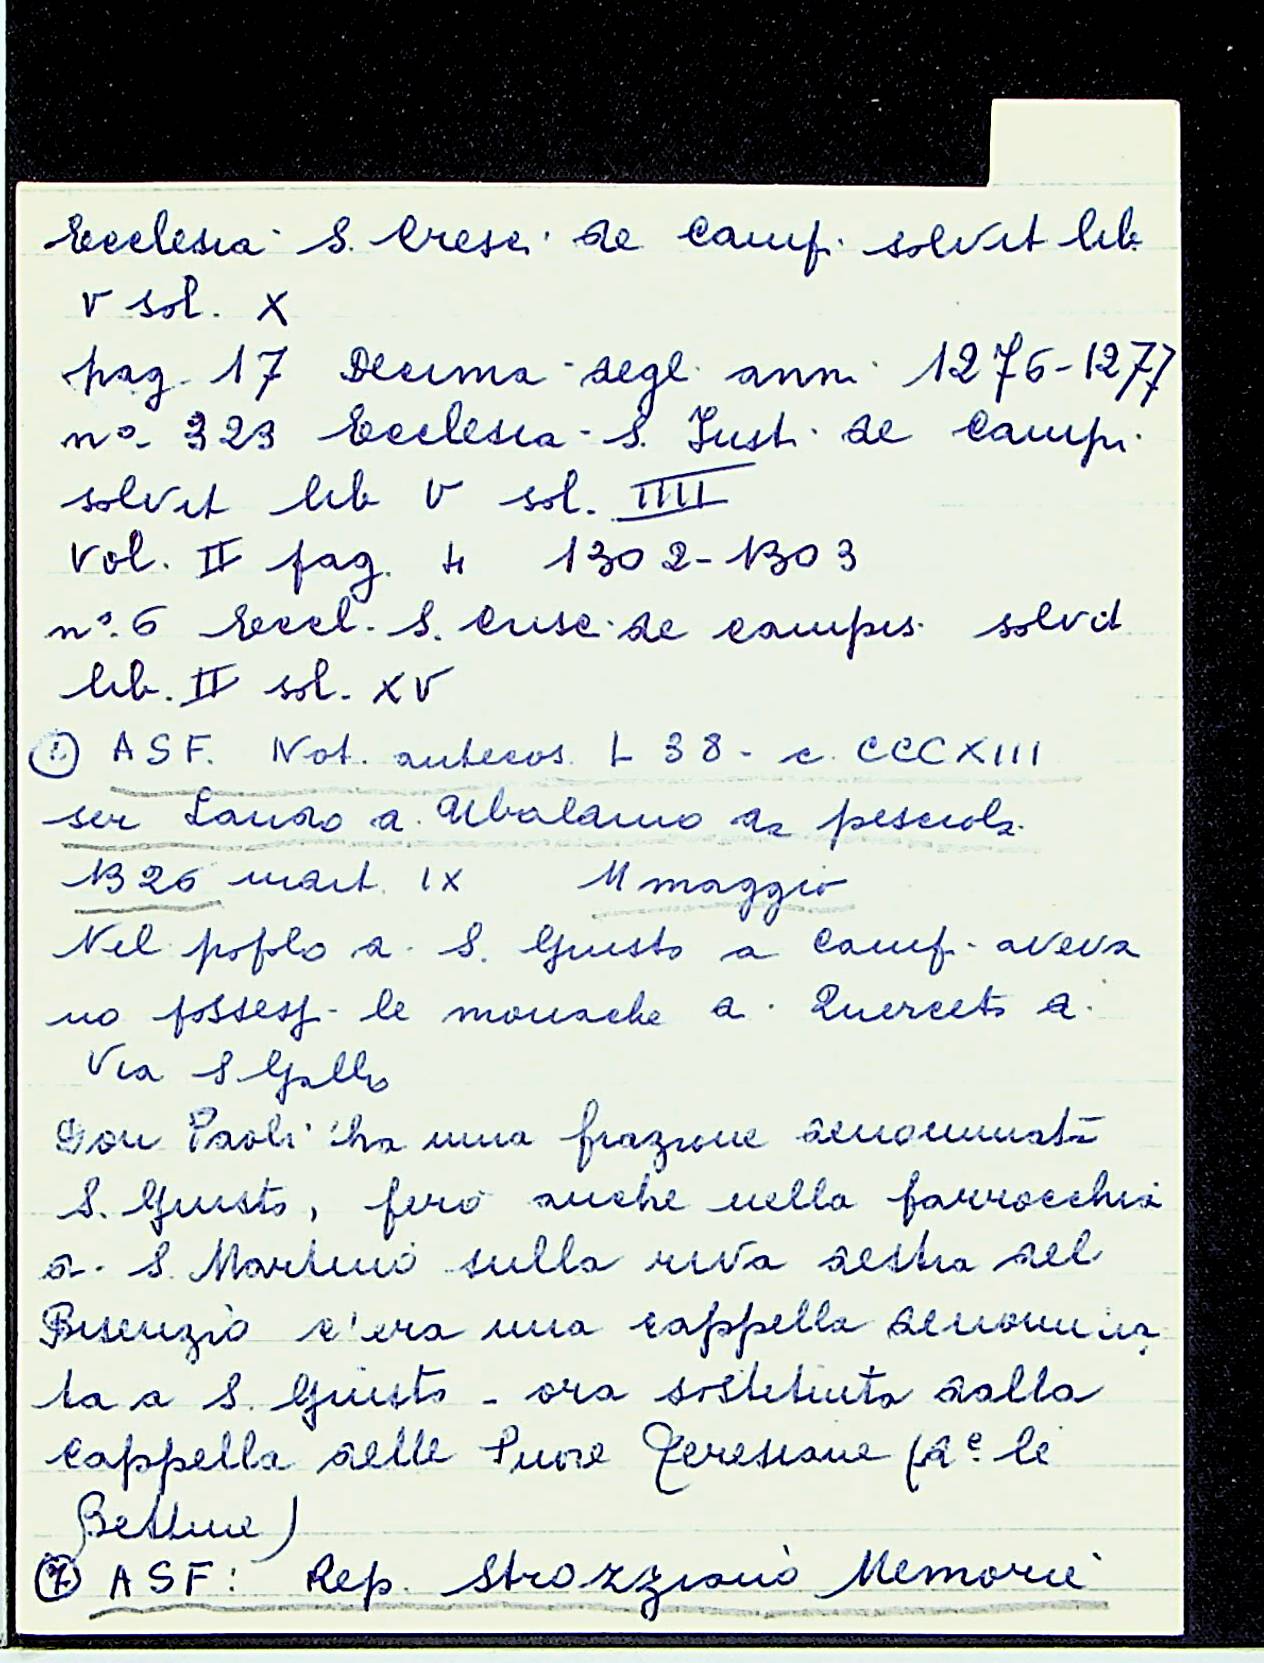 Ecclesia S. Cresci de Camp. solvit lib.
V sol. X
pag. 17 Decima degl. anni 1276-1277
n°. 323 Ecclesia S. Just. de Campi.
solvit lib V sol. IIII
Vol. II pag. 4 1302-1303
n°. 6 Eccl. S. Crisc. de campis solvit
lib. II sol. XV
① ASF. Not. antecos. L 38 - c. CCCXIII
ser Lando d. Ubaldino da pesciola
1326 ind. IX 11 maggio
Nel popolo d. S. Giusto a Camp. aveva
no possess. le monache d. Querceto d.
Via S Gallo
Don Paoli ha una frazione denominata
S. Giusto, però anche nella parrocchia
d. S. Martino sulla riva destra del
Bisenzio c'era una cappella denomina
ta a S. Giusto - ora sostituita dalla
cappella delle Suore Teresiane (d.e le
Bettine)
② ASF: Rep. Strozziano Memorie